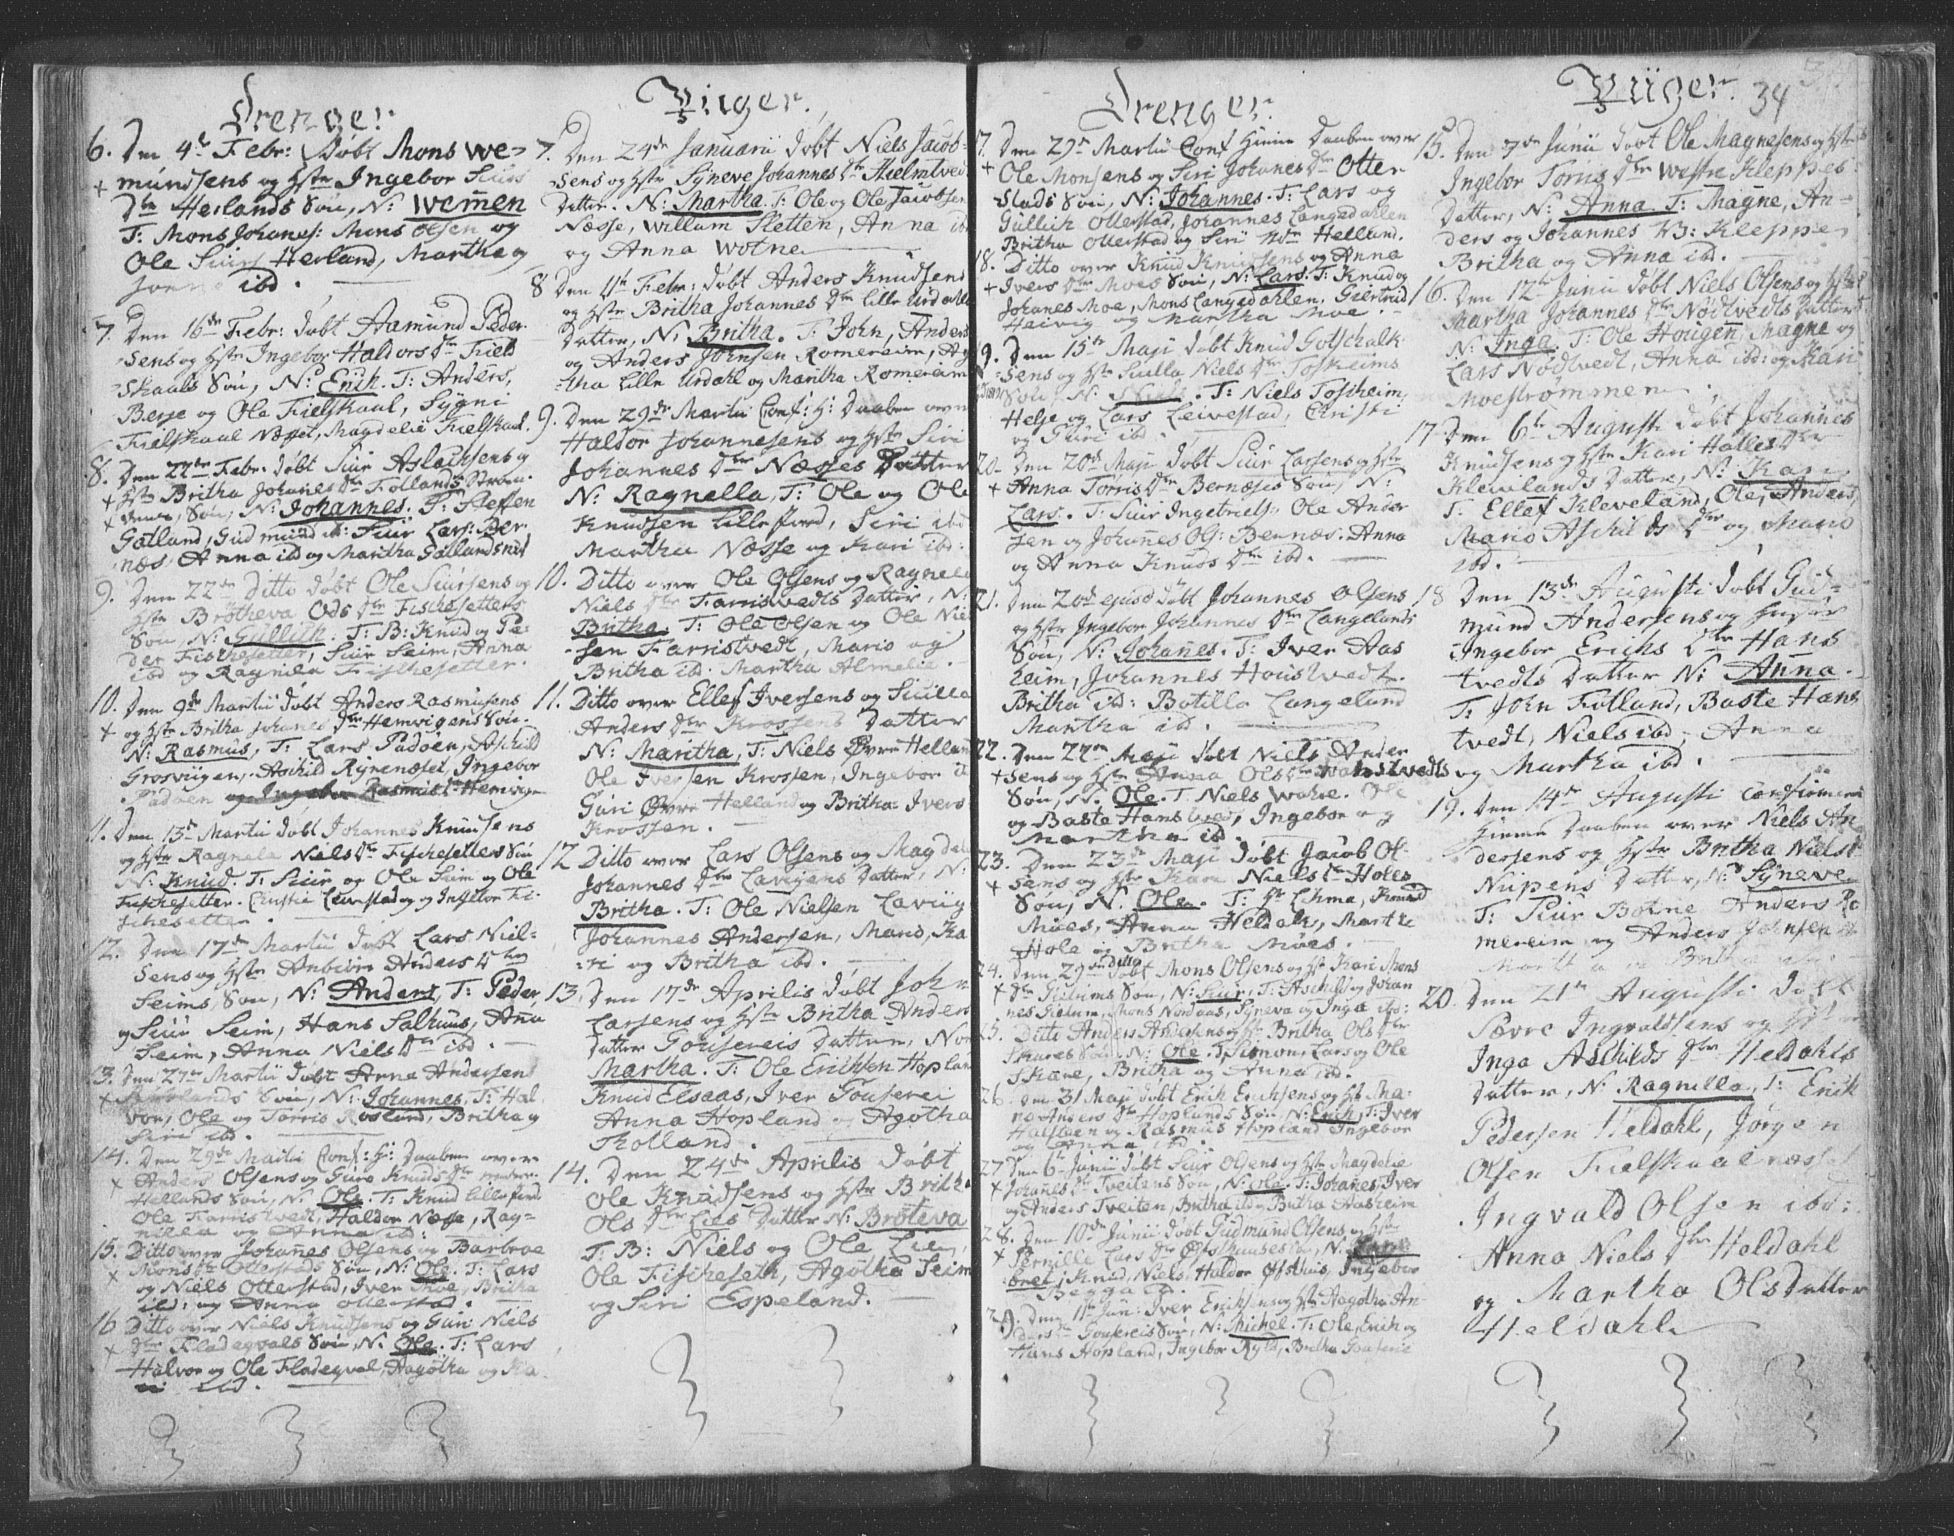 Drenger.
6. Den 4de Febr: Døbt Mons We-
mundsens og Hstr Ingebor Siurs
Dtr Herlands Søn, N: Wemen
T: Mons Johanes: Mons Olsen og
Ole Siurs Herland, Martha og
ibd.
7. Den 16de Febr: døbt Aamund Peder-
sens og Hstr Ingebor Haldors Dtr Fiels
Skaals Søn, N: Erich. T: Anders,
Berje og Ole Fielskaal, Sygni
Fielskaal Næsset, Magdelie Fielskaal.
8. Den 22de Febr: døbt Siur Aslachsens og
Hstr Britha Johanes Dtr Follands Strøm-
Søn, N: Johannes. T: Steffen
Gatland, Gudmund Siur Lars: Ber-
næs, Anna ibd og Martha Gatlandsnes
9. Den 22de Ditto døbt Ole Siursens og
Hstr Brøtheva Ods Dtr Fischesetters
Søn, N: Gullich. T: B: Knud og Pe-
der Fischesetter, Siur Seim, Anna
ibd og Ragnela Fischesetter.
10. Den 9de Martii døbt Anders Rasmusens
og Hstr Britha Johanes Dtr Hemvigens Søn.
N: Rasmus, T: Lars Padøen, Aschild
Grosviigen, Aschild Rynenæset, Ingebor
Padøen og Ingebor Rasmus: Hemvigen
11. Den 13de Martii døbt Johannes Knudsens
og Hstr Ragnela Niels Dtr Fischesetters Søn
N: Knud. T: Siur og Ole Seim og Ole
Fischesetter. Christie Leivestad og Ingebor Fi-
schesetter.
12. Den 17de Martii døbt Lars Niel-
sens og Hstr Anbiør Anders Dtr
Seims, Søn, N: Anders, T: Peder,
og Siur Seim, Hans Salhuus, Anna
Seim, Anna Niels Dtr ibd.
13. Den 27de Martii døbt Anna Andersens
Søn, N: Johannes, T: Hal-
vor, Ole og Torris Rosland, Britha og
Siri ibd.
14. Den 29de Martii Conf: H: Daaben over
Anders Olsens og Guro Knuds Dtr
Hellands Søn, N: Ole. T: Knud Lillefiord
Ole Farristvedt, Haldor Næsse, Rag-
nilla og Anna ibd:
15. Ditto over Johanes Olsens og Barbroe
Mons Dtr Otterstads Søn, N: Ole. T: Lars
og Niels Otterstad, Iver Moe, Britha
ibd: og Anna Otterstad.
16 Ditto over Niels Knudsens og Guri Niels
Dtr Fladeqvals Søn, N: Ole. T: Lars
Halvor og Ole Fladeqval, Aagotha og Ka-
ri ibd.
Piiger.
7. Den 24de Januarii døbt Niels Jacob-
sens og Hstr Syneve Johannes Dtr Hielmtveds
Datter. N: Martha. T: Ole og Ole Jacobsen
Næsse, Willum Sletten, Anna ibd
og Anna Wotne
8 Den 11te Febr: døbt Anders Knudsens
og Hstr Britha Johannes Dtr Lille Urdahls
Datter, N: Britha. T: John, Anders
og Anders Johnsen Romereim, Ag-
tha Lille Urdahl og Martha Romereim
9. Den 29de Martii Conf: H: Daaben over
Haldor Johannesens og Hstr Siri
Johannes Dtr Næsses Datter
N: Ragnella, T: Ole og Ole
Knudsen Lillefiord, Siri ibd
Martha Næsse og Kari ibd:
10. Ditto over Ole Olsens og Ragnela
Niels Dtr Farristvedts Datter, N:
Britha. T: Ole Olsen og Ole Niel-
sen Farristvedt, Maris og
Britha ibd. Martha Almelie.
11. Ditto over Ellef Iversens og Siuilla
Anders Dtr Krossens Datter
N: Martha, T: Niels Øvre Helland
Ole Iversen Krossen, Ingebor ibd
Guri Øvre Helland og Britha Ivers
Krossen.
12 Ditto over Lars Olsens og Magdela
Johannes Dtr Lavigens Datter, N:
Britha. T: Ole Nielsen Laviig
Johannes Andersen, Maris, Ka-
ri og Britha ibd.
13. Den 17de Aprilis døbt John
Larsens og Hstr Britha Anders
Datter Gousereis Datter, Nom
Martha. T: Ole Erichsen Hopland
Knud Elsaas, Iver Fouserei
Anna Hopland og Agotha
Tholland.
14. Den 24de Aprilis døbt
Ole Knudsens og Hstr Britha
Ols Dtr Lies Datter N: Brøteva
T: B: Niels og Ole Lien,
Ole Fischeseth, Agotha Seim
og Siri Espeland.
Drenger.
17. Den 29de Martii Conf Hieme Daaben over
Ole Monsens og Siri Johanes Dtr Otter-
stads Søn, N: Johannes. T: Lars og
Gullich Otterstad, Johannes Langedahlen
Britha Otterstad og Siri Helland.
18. Ditto over Knud Knudsens og Anna
Ivers Dtr Moes Søn, N: Lars. T: Knud og
Johanes Moe, Mons Langedahlen. Giertrud
Helvig og Martha Moe.
19. Den 15de Maji døbt Knud Gotschalk-
sens og Hstr Siuilla Niels Dtr Toskeims
Søn, N: T: Niels Toskeim,
Helje og Lars Leivestad, Christi
og Siri ibd.
20. Den 20de Maji døbt Siur Larsens og Hstr
Anna Torris Dtr Bernæses Søn, N:
Lars. T: Siur Ingebriels: Ole Ander-
sen og Johanes Ols: Bernæs. Anna
og Anna Knuds Dtr ibd.
21. Den 20de døbt Johannes Olsens
og Hstr Ingebor Johannes Dtr Langelands
Søn, N: Johanes. T: Iver Aas-
heim, Johannes Houstvedt.
Britha ibd: Botilla Langeland
Martha ibd.
22. Den 22de Maji døbt Niels Ander-
sens og Hstr Anna Ols Dtr Hanstvedts
Søn, N. Ole. T. Niels Wahse. Ole
og Baste Hanstved, Ingebor og
Martha ibd.
23. Den 23de Maji døbt Jacob Ol-
sens og Hstr Kari Niels Dtr Holes
Søn, N. Ole. T: Hr Lehme, Knud
Moes, Anna Heldal, Marthe
Hole og Britha Moes.
24. Den 29de Ditto døbt Mons Olsens og Hstr Kari Mons
Dtr Søn, N: Siur, T: Aschild og Johan-
nes, Mons Nordaas, Syneva og Inga ibd:
25. Ditto Anders Andersens og Hstr Britha Ols Dtr
Skares Søn, N: Ole. T Simon, Lars og Ole
Skare, Britha og Anna ibd.
26. Den 31 Maji døbt Erik Erichsens og Hstr Ma-
ris Anders Dtr Hoplands Søn, N: Erich, T: Iver
Halsteen og Rasmus Hopland Ingebor
og Anna ibd.
27 Den 6te Junii døbt Siur Olsens og Hstr Magdelie
Johanes Dtr Tveitens Søn, N: Ole. T: Johanes, Iver
og Anders Tveiten, Britha ibd og Britha Aasheim
28. Den 10de Junii døbt Gudmund Olsens og Hstr
Pernille Lars Dtr Øfsthuuses Søn, N:
Knud, Niels, Haldor Øfsthuus, Ingebor
Begga ibd.
29. Den 11te Jun: Iver Erichsens og Hstr Aagotha An-
ders Dtr Gousereis Søn, N: Michel. T: Ole, Erich og
Hans Hopland, Ingebor Kyld, Britha Fouserie
Piiger. 34
15. Den 7de Junii døbt Ole Magnesens og Hstr
Ingebor Torris Dtr Westre Kleppes
Datter, N: Anna. T: Magne, An-
ders og Johannes W: Kleppe
Britha og Anna ibd.
16. Den 12te Junii døbt Niels Olsens og Hstr
Martha Johannes Dtr Nødtvedts Datter
N: Inga. T: Ole Hougen, Magne og
Lars Nødtvedt, Anna ibd: og Kari
Moestrømmen.
17. Den 6te Augusti døbt Johannes
Knudsens og Hstr Kari Halles Dtr
Klevelands Datter, N: Kari
T: Ellef Kleveland, Ole, Anders,
Maris Aschilds Dtr og Maris
ibd.
18 Den 13de Augusti døbt Gud-
mund Andersens og Hstr
Ingebor Erichs Dtr Hans
tvedts Datter N: Anna.
T: John Folland, Baste Hans
tvedt, Niels ibd, Anna
og Martha ibd.
19. Den 14de Augusti confirmeret
Hieme Daaben over Niels An-
dersens og Hstr Britha Niels Dtr
Nupens Datter, N: Syneve.
T: Siur Botne Anders Ro-
mereim og Anders Johnsen ibd
Martha og Britha
20. Den 21de Augusti døbt
Sævre Ingvaldsens og Hstr
Inga Aschilds Dtr Heldahls
Datter, N: Ragnilla, T: Erik
Pedersen Heldahl, Jørgen
Olsen Fielskaalnæsset
Ingvald Olsen ibd:
Anna Niels Dtr Heldahl
og Martha Ols Datter
Heldahl